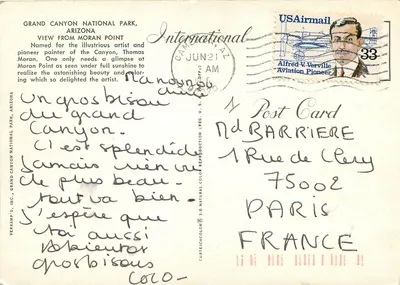 GRAND CANYON NATIONAL PARK,
ARIZONA
VIEW FROM MORAN POINT
Named for the illustrious artist and
pioneer painter of the Canyon, Thomas
Moran. One only needs a glimpse at
Moran Point as seen under full sunshine to
realize the astonishing beauty and
which so delighted the artist.
International
JUN 21
AM
USAirmail
Alfred V. Verville
Aviation Pioneer
33
Post Card
un gros bisou
du grand
Canyon.
C'est splendide
jamais rien vu
de plus beau.
tout va bien.
J'espère que
toi aussi
A bientôt
gros bisous
COCO
Md BARRIERE
1 Rue de Clery
75002
PARIS
FRANCE